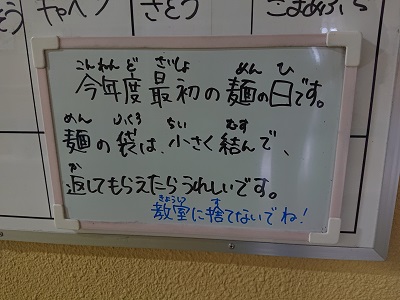 キャベツ
さとう
こんねんど さいしょ めん ひ
今年度最初の麺の日です。
めん ふくろ ちい むす
麺の袋は、小さく結んで、
かえ
返してもらえたらうれしいです。
きょうしつ す
教室に捨てないでね!